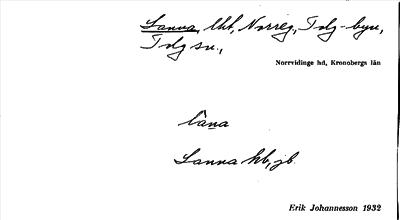 Sanna, lht, Norreg, Tolg-byn,
Tolg sn.,
Norrvidinge hd, Kronobergs län
Sanna hb, jb.
Erik Johannesson 1932